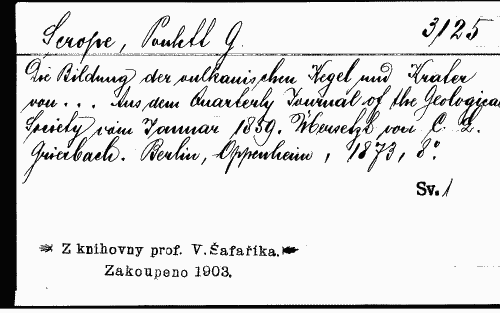 Scrope, Poulett G. 3/125
Die Bildung der vulkanischen Kegel und Krater
von... Aus dem Quarterly Journal of the Geological
Society vom Januar 1859. Übersetzt von C. L.
Griesbach. Berlin, Oppenheim, 1873, 8°.
Sv. 1
Z knihovny prof. V. Šafaříka.
Zakoupeno 1903.